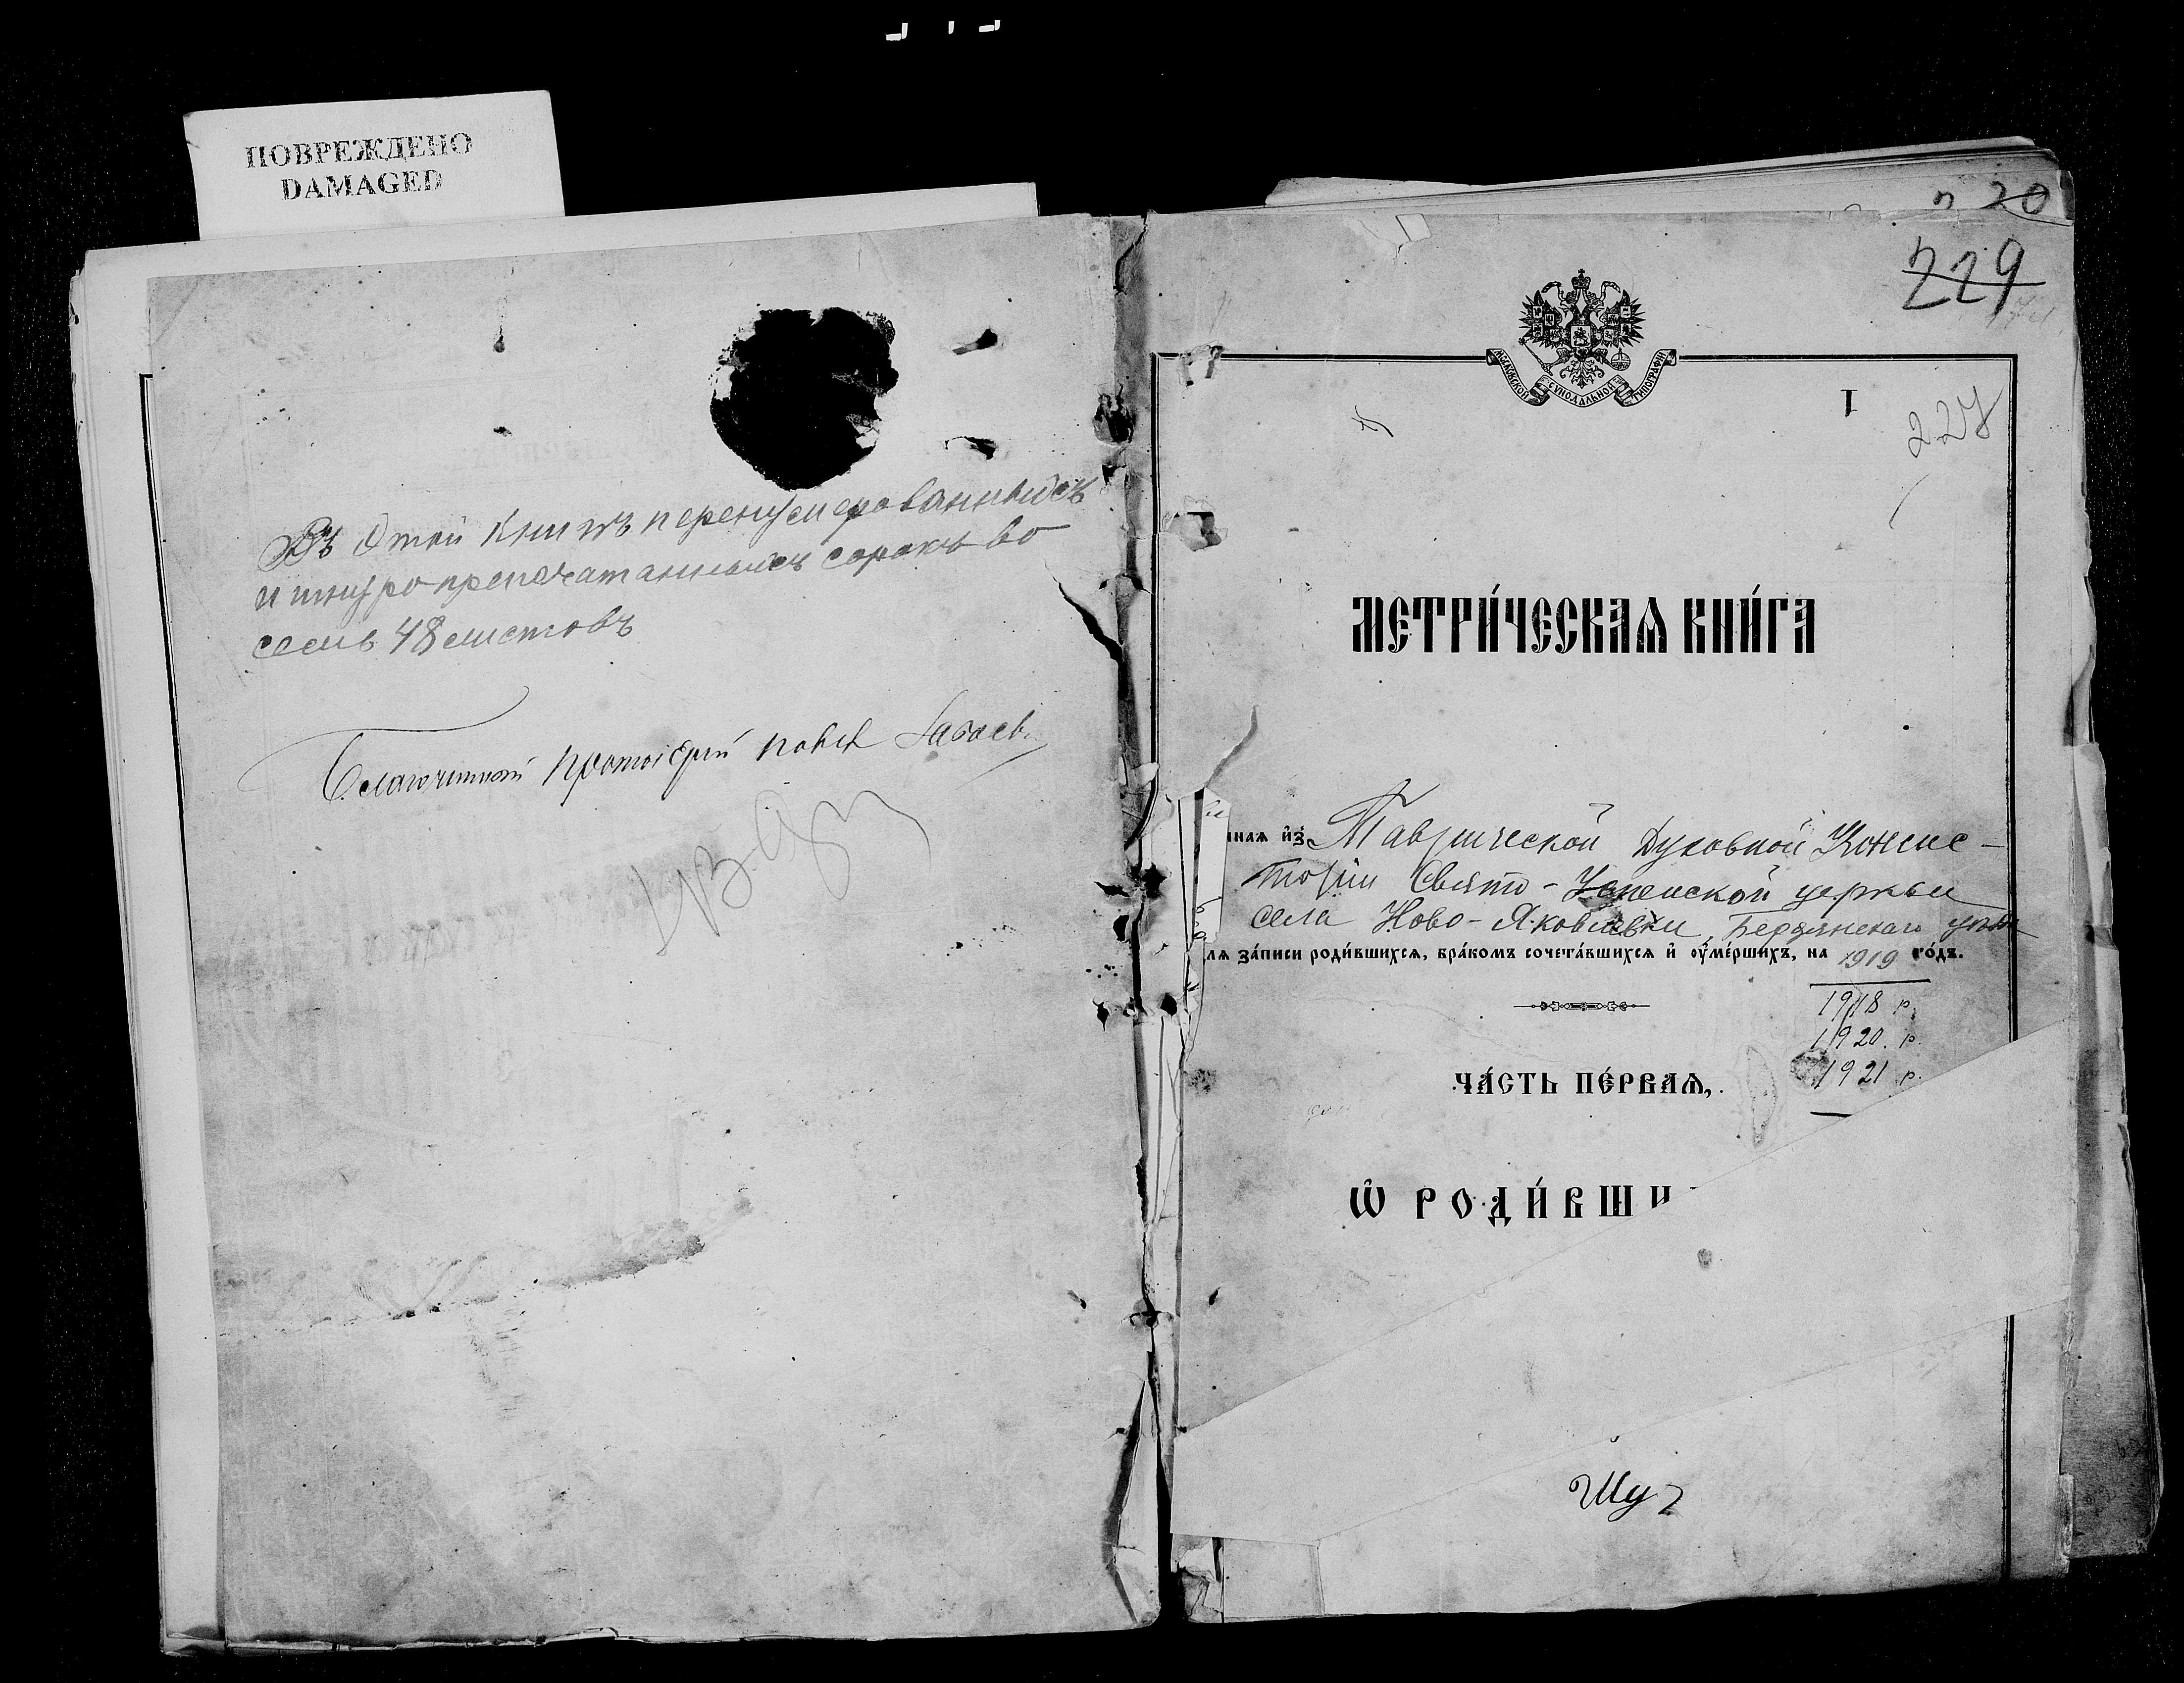 ПОВРЕЖДЕНО
DAMAGED
Въ этой книгѣ перенумерованныхъ
и шнуропрепечатанныхъ сорокъ во
семь 48 листовъ
Благочинный протоіерей
20
229
МОСКОВСКОЙ СѴНОДАЛЬНОЙ ТИПОГРАФІИ
227
МЕТРИ́ЧЕСКАѦ КНИ́ГА
ннаѧ и҆з̾ Таврической Духовной Консис-
торіи Свято-Успенской церкви
села Ново-Яковлевки, Бердянскаго уѣз
лѧ за́писи роди́вшихсѧ, бра́комъ сочета́вшихсѧ и҆ оу҆ме́ршихъ, на 1919 го́дъ.
1918 р.
1920. р.
1921 р.
ЧА́СТЬ ПЕ́РВАѦ,
Ѡ҆ РОДИ́ВШИ